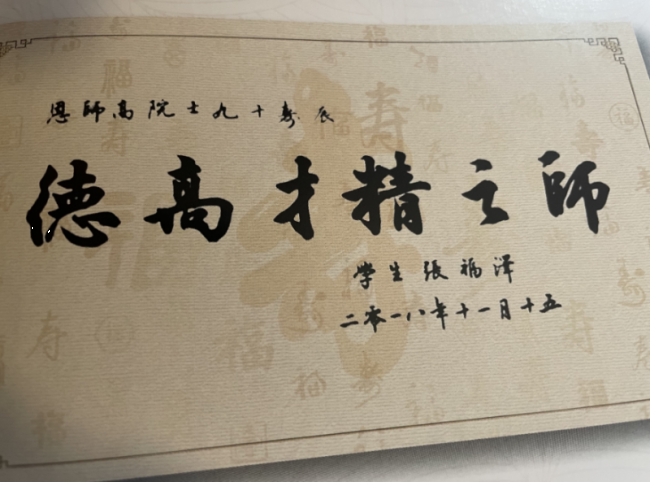 恩師高院士九十寿辰
德高才精之師
学生張福澤
二零一八年十一月十五